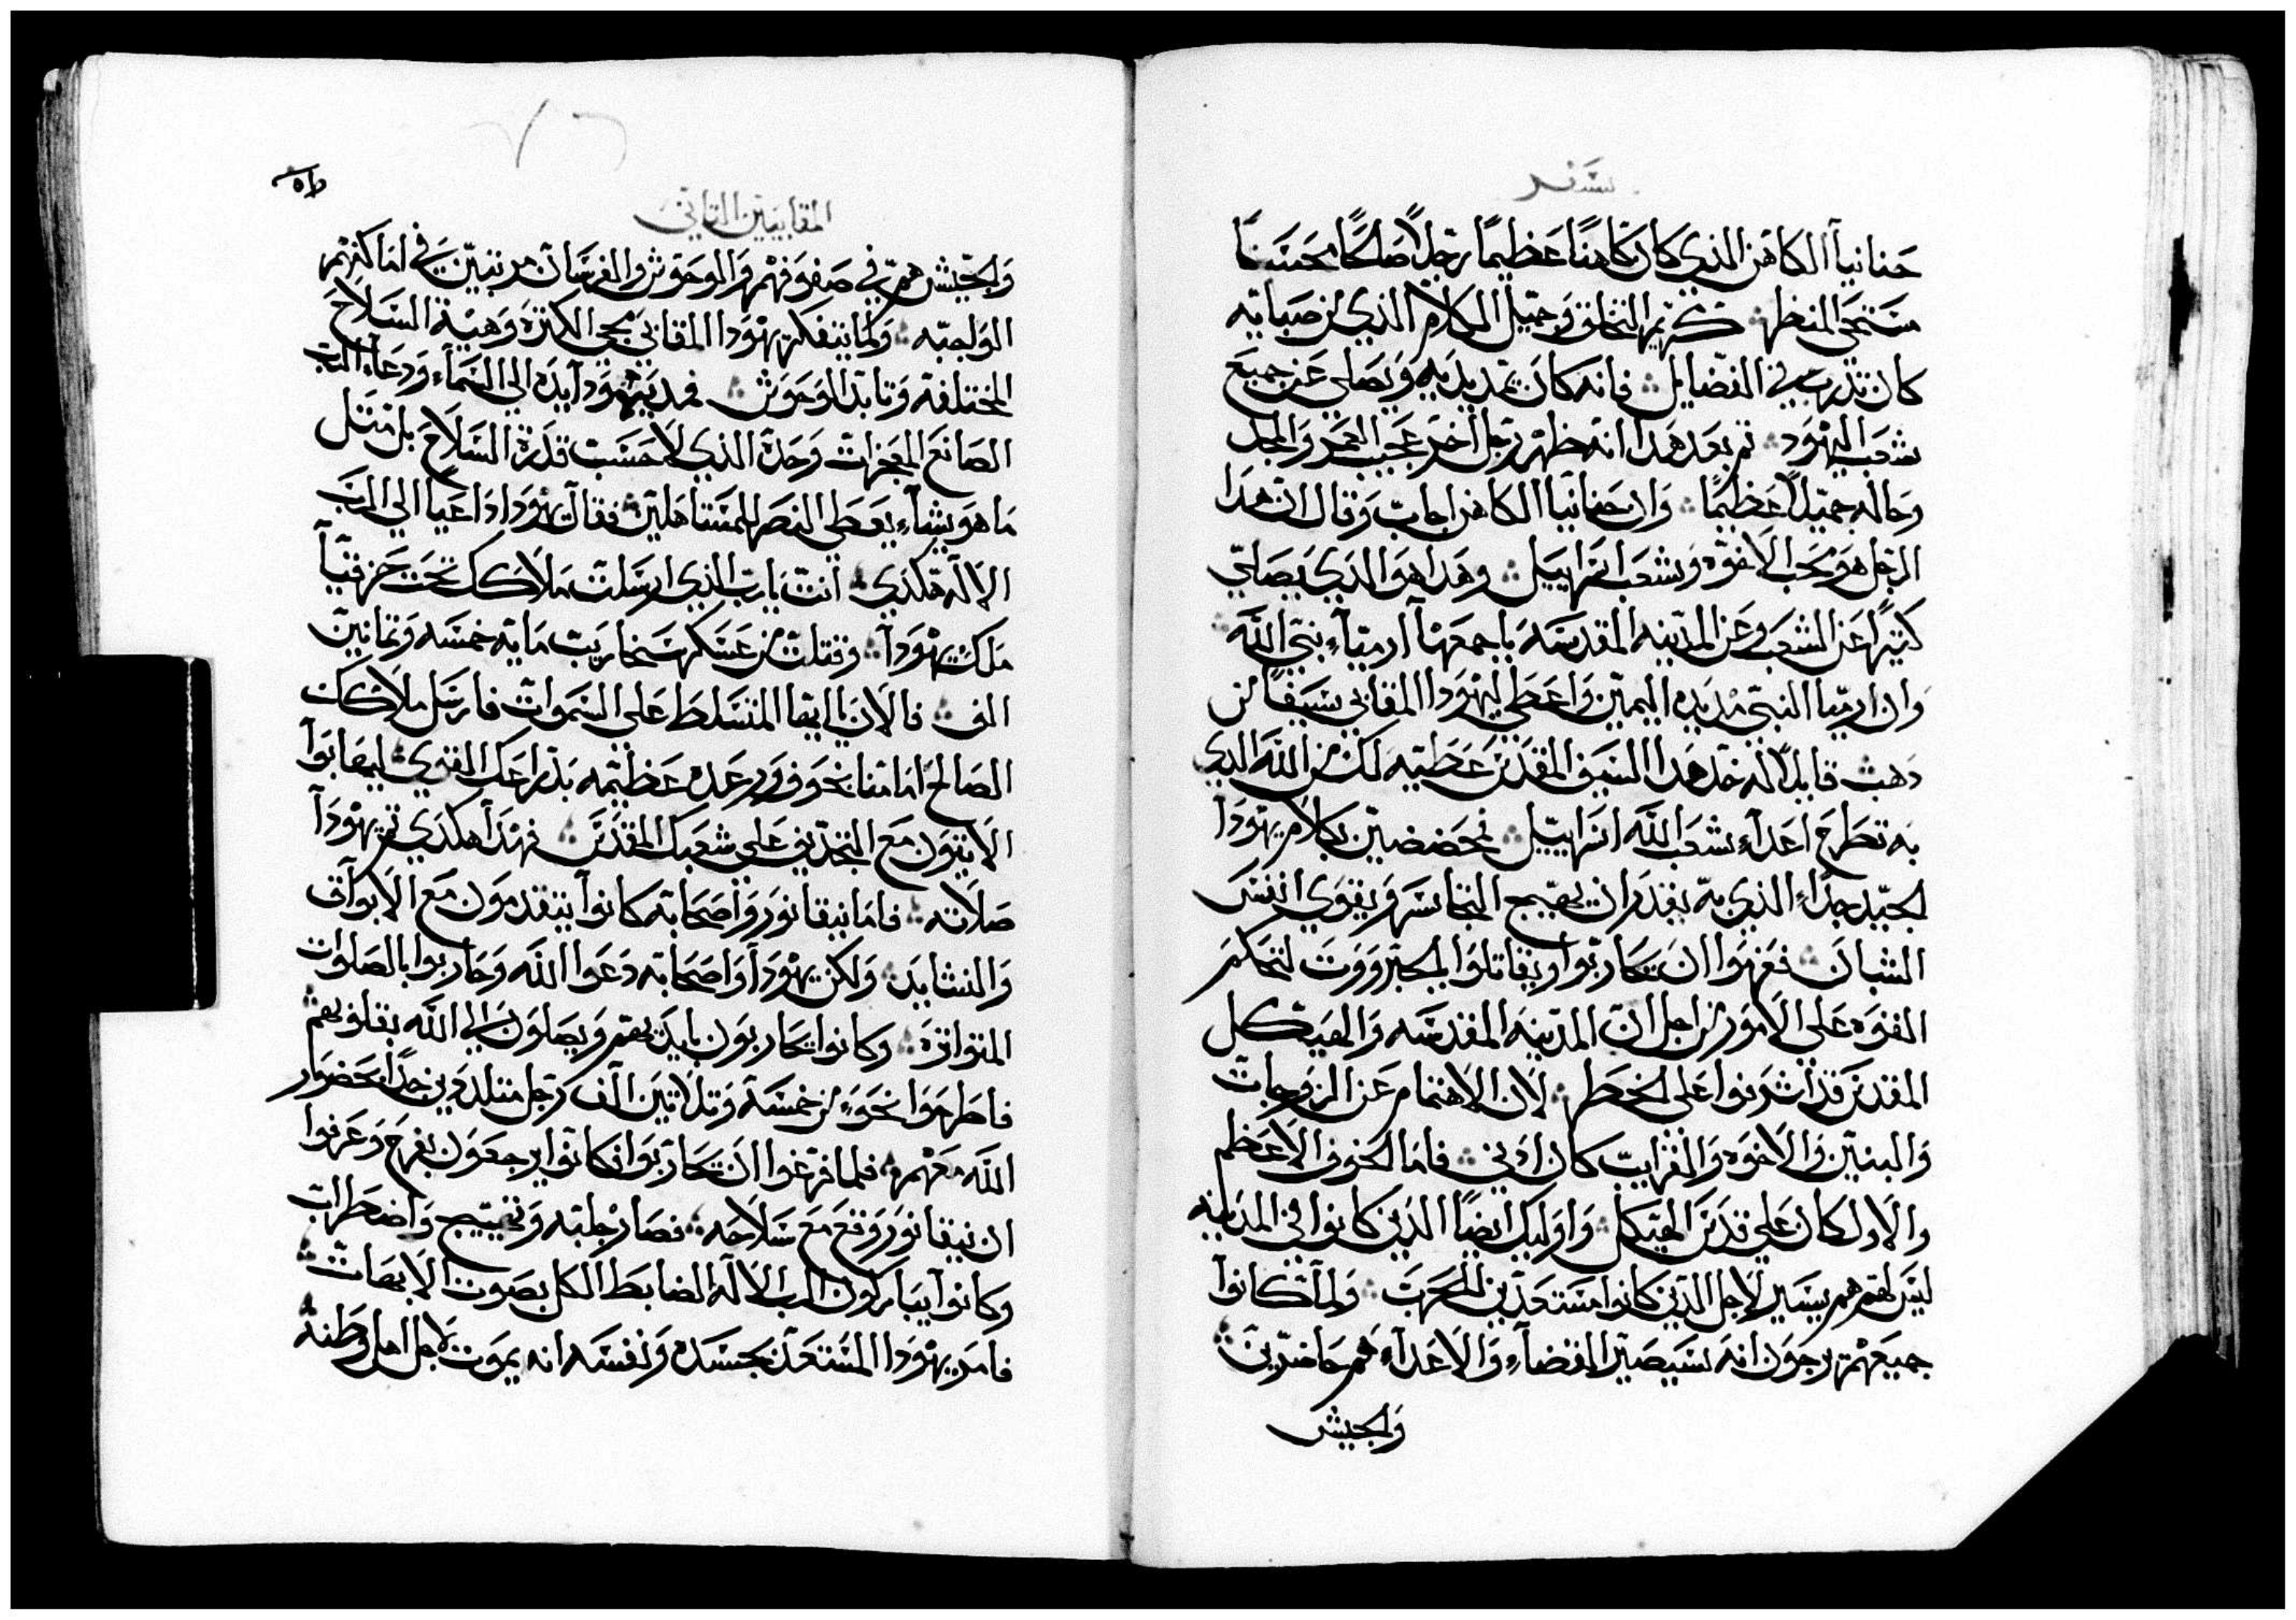 سفر
حنانيا الكاهن الذي كان كاهنًا عظيمًا رجلاً صالحًا محسنًا
مستحي المنظر كريم التخلق وجميل الكلام الذي من صبايه
كان تدرب في الفضايل فانه كان يمد يديه ويصلي عن جميع
شعب اليهود ثم بعد هذا انه ظهر رجل اخر عجيب العمر والمجد
وحاله جميلاً عظيمًا وان حنانيا الكاهن اجاب وقال ان هذا
الرجل هو محب الاخوه وشعب اسراييل وهذا هو الذي يصلي
كثيرًا عن الشعب وعن المدينه المقدسه باجمعها ارميآء نبي الله
وان ارميا النبي مد يده اليمين واعطى ليهودا المقابي سيفًا من
ذهب قايلاً له خذ هذا السيف المقدس عطيه لك من الله الذي
به تطرح اعدآء شعب الله اسراييل فحضضين بكلام يهودا
الجيد جدًا الذي به يقدر ان يهيج التجاسر ويقوي انفس
الشبان فعزموا ان يتحاربوا ويقاتلوا بالجبروت لتحكم
القوه على الامور من اجل ان المدينه المقدسه والهيكل
المقدس قد اشرفوا على الخطر لان الاهتمام عن الزوجات
والبنين والاخوه والقرايب كان ادنى فاما الخوف الاعظم
والاول كان على قدس الهيكل واوليك ايضًا الذين كانوا في المدينه
ليس لهم هم يسير لاجل الذين كانوا مستعدين للحرب ولما كانوا
جميعهم يرجون انه سيصير القضآء والاعدآء هم حاضرين
والجيش
المقابيين الثاني
والجيش هم في صفوفهم والوحوش والفرسان مرتبين في اماكنهم
الواجبه ولما يتفكر يهودا المقابي مجي الكثره وهية السلاح
المختلفة وتابد الوحوش فمد يهودا يده الى السمآء ودعا الرب
الصانع المعجزات وحده الذي لا حسب قدرة السلاح بل مثل
ما هو يشآء يعطي النصر للمستاهلين فقال يهودا داعيا الى الرب
الاله هكذي انت يارب الذي ارسلت ملاكك تحت حزقيآ
ملك يهودآ وقتلت من عسكر سنحاريب مايه خمسه وثمانين
الف فالان يا ايها المتسلط على السموات فارسل ملاكك
الصالح امامنا بخوف ورعده عظيمه بذراعك القوي ليهابوا
الاتون مع التجديف على شعبك المقدس فهذا هكذي تم يهودآ
صلاته فاما نيقانور واصحابه كانوا يتقدمون مع الابواق
والنشايد ولكن يهودآ واصحابه دعوا الله وحاربوا بالصلوات
المتواتره وكانوا يحاربون بايديهم ويصلون الى الله بقلوبهم
فاطرحوا نحو من خمسة وثلاثين الف رجل متلددين جدًا بحضور
الله معهم فلما فرغوا ان يتحاربوا فكانوا يرجعون بفرح وعرفوا
ان نيقانور وقع مع سلاحه فصار جلبه وتهييج واضطراب
وكانوا يباركون الرب الاله الضابط الكل بصوت الابهات
فامر يهودا المستعد بجسده ونفسه انه يموت لاجل اهل وطنه